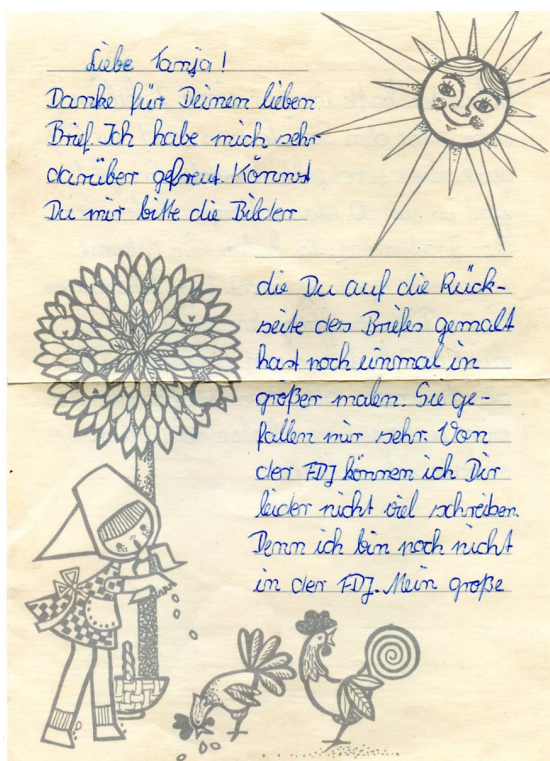 Liebe Tanja!
Danke für Deinen lieben
Brief. Ich habe mich sehr
darüber gefreut. Könnst
Du mir bitte die Bilder
die Du auf die Rück-
seite des Briefes gemalt
hast noch einmal in
größer malen. Sie ge-
fallen mir sehr. Von
der FDJ können ich Dir
leider nicht viel schreiben.
Denn ich bin noch nicht
in der FDJ. Mein große